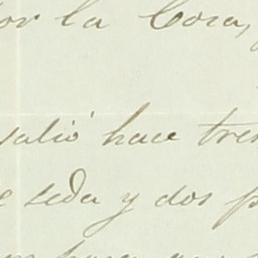 por la Cosa,
salió hace tres
de seda y dos p